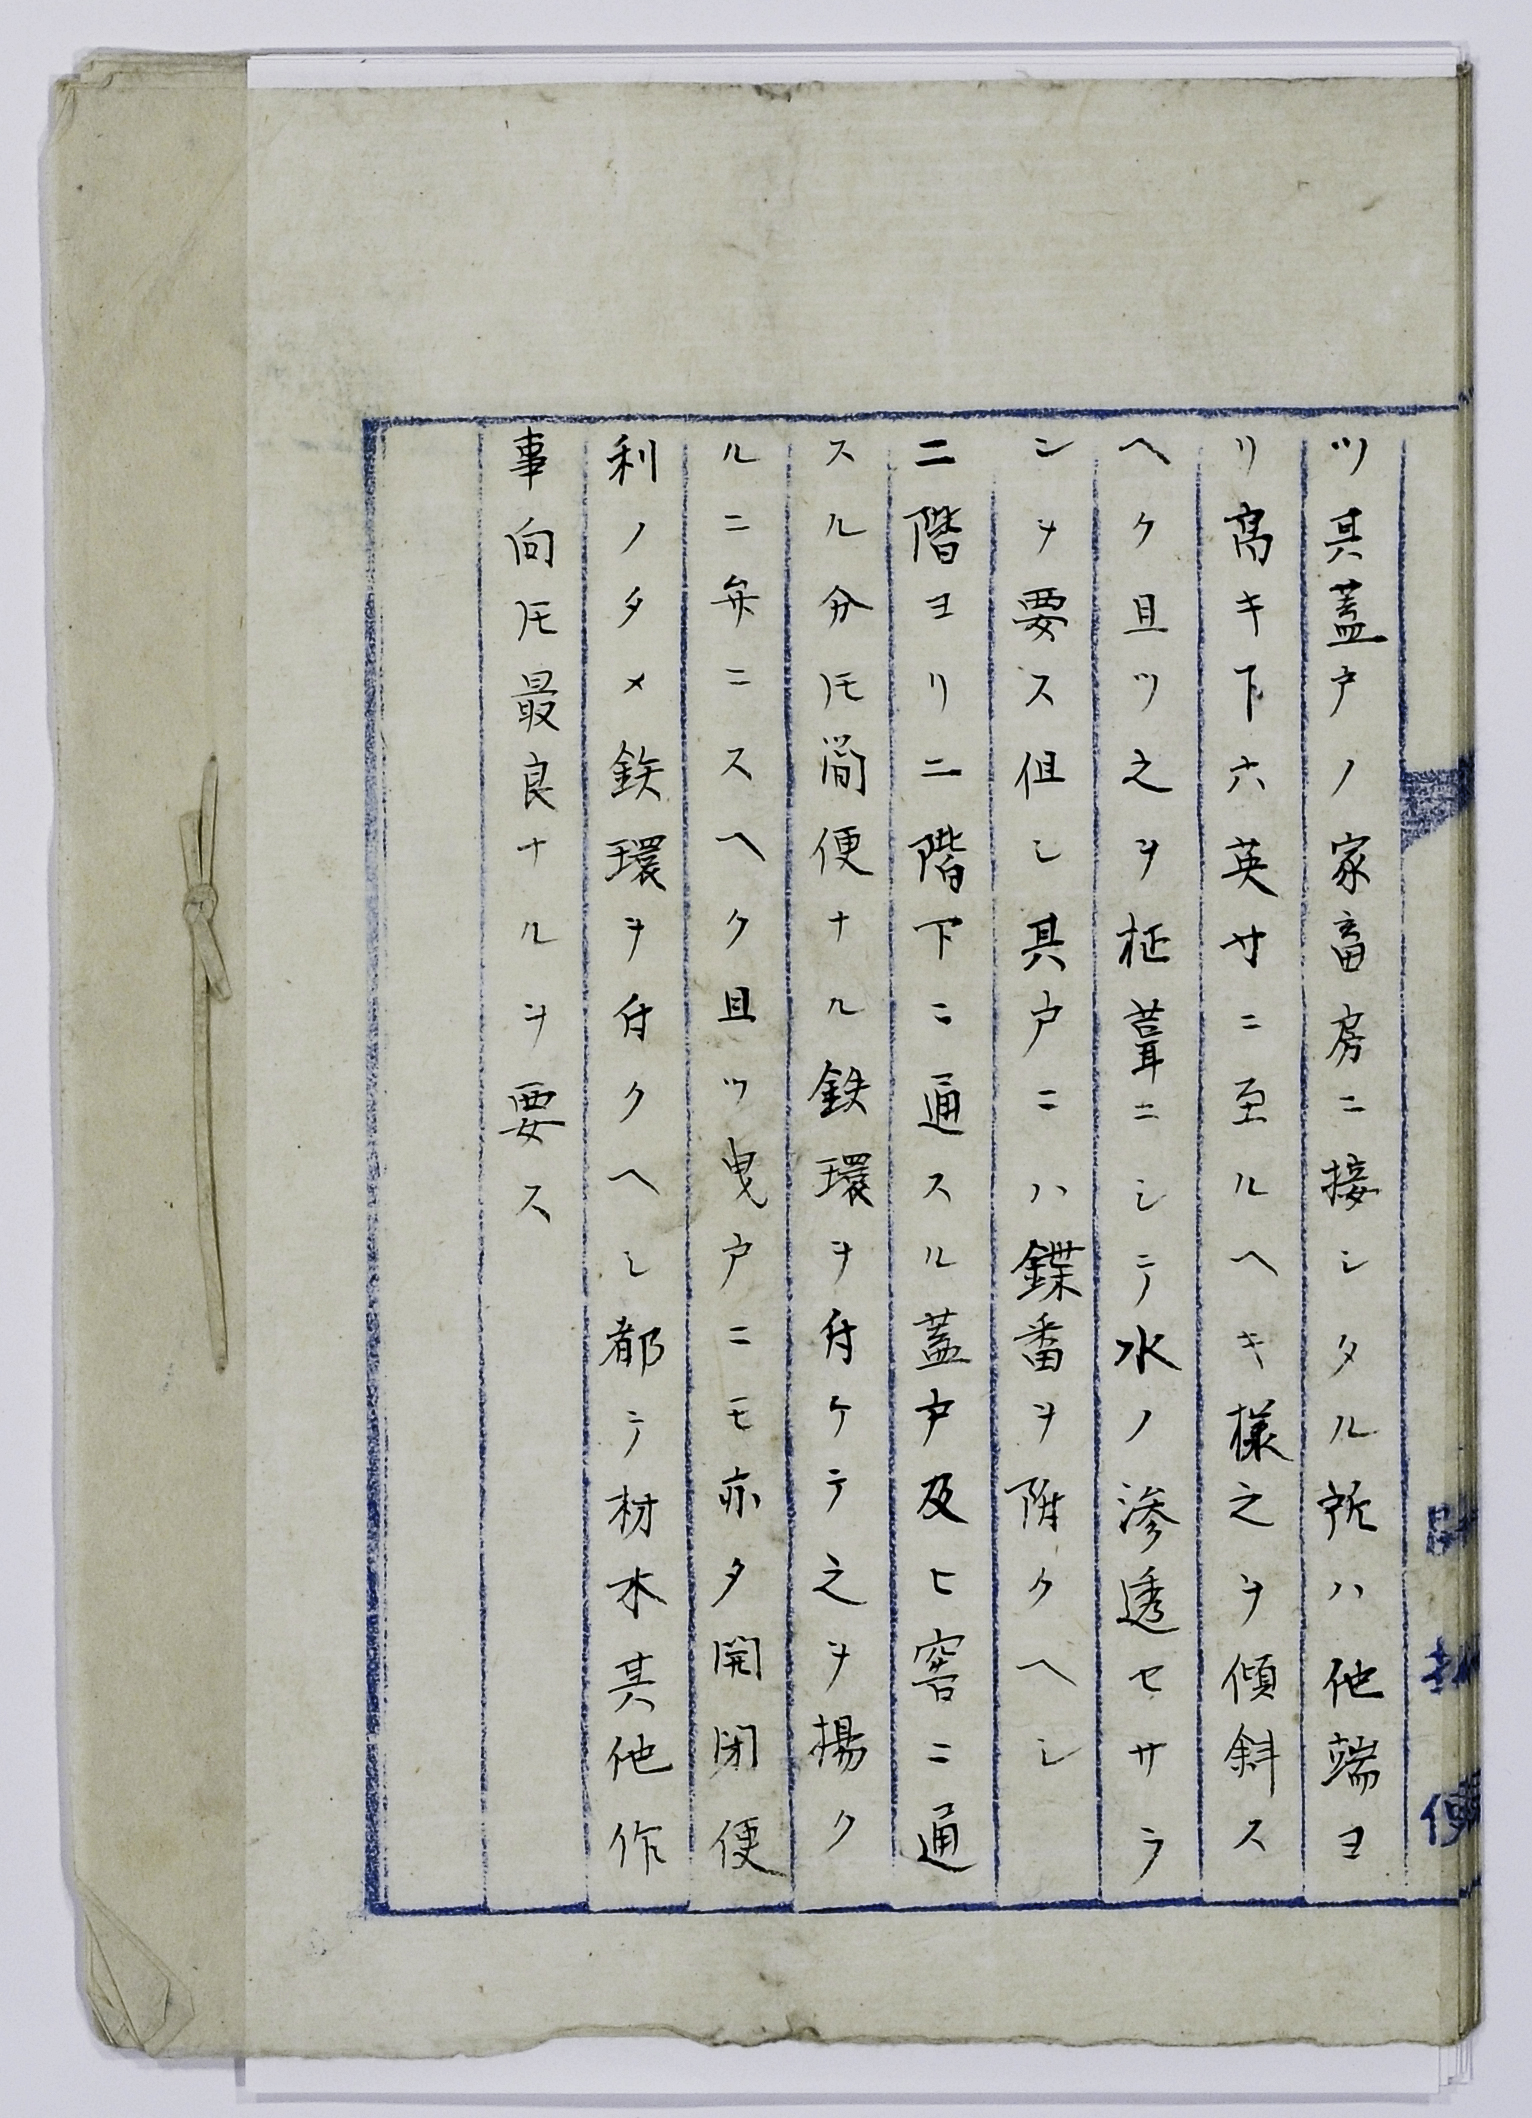 ツ其蓋戸ノ家畜房ニ接シタル所ハ他端ヨ
リ高キ下六英寸ニ至ルヘキ樣之ヲ傾斜ス
ヘク且ツ之ヲ柾葺ニシテ水ノ滲透セサラ
ンヲ要ス但シ其戸ニハ鍱番ヲ附クヘシ
二階ヨリ二階下ニ通スル蓋戸及ヒ窖ニ通
スル分𪜈简便ナル鉄環ヲ付ケテ之ヲ揚ク
ルニ弁ニスヘク且ツ曳戸ニモ亦タ開閉便
利ノタメ鉄環ヲ付クヘシ都テ材木其他作
事向𪜈最良ナルヲ要ス